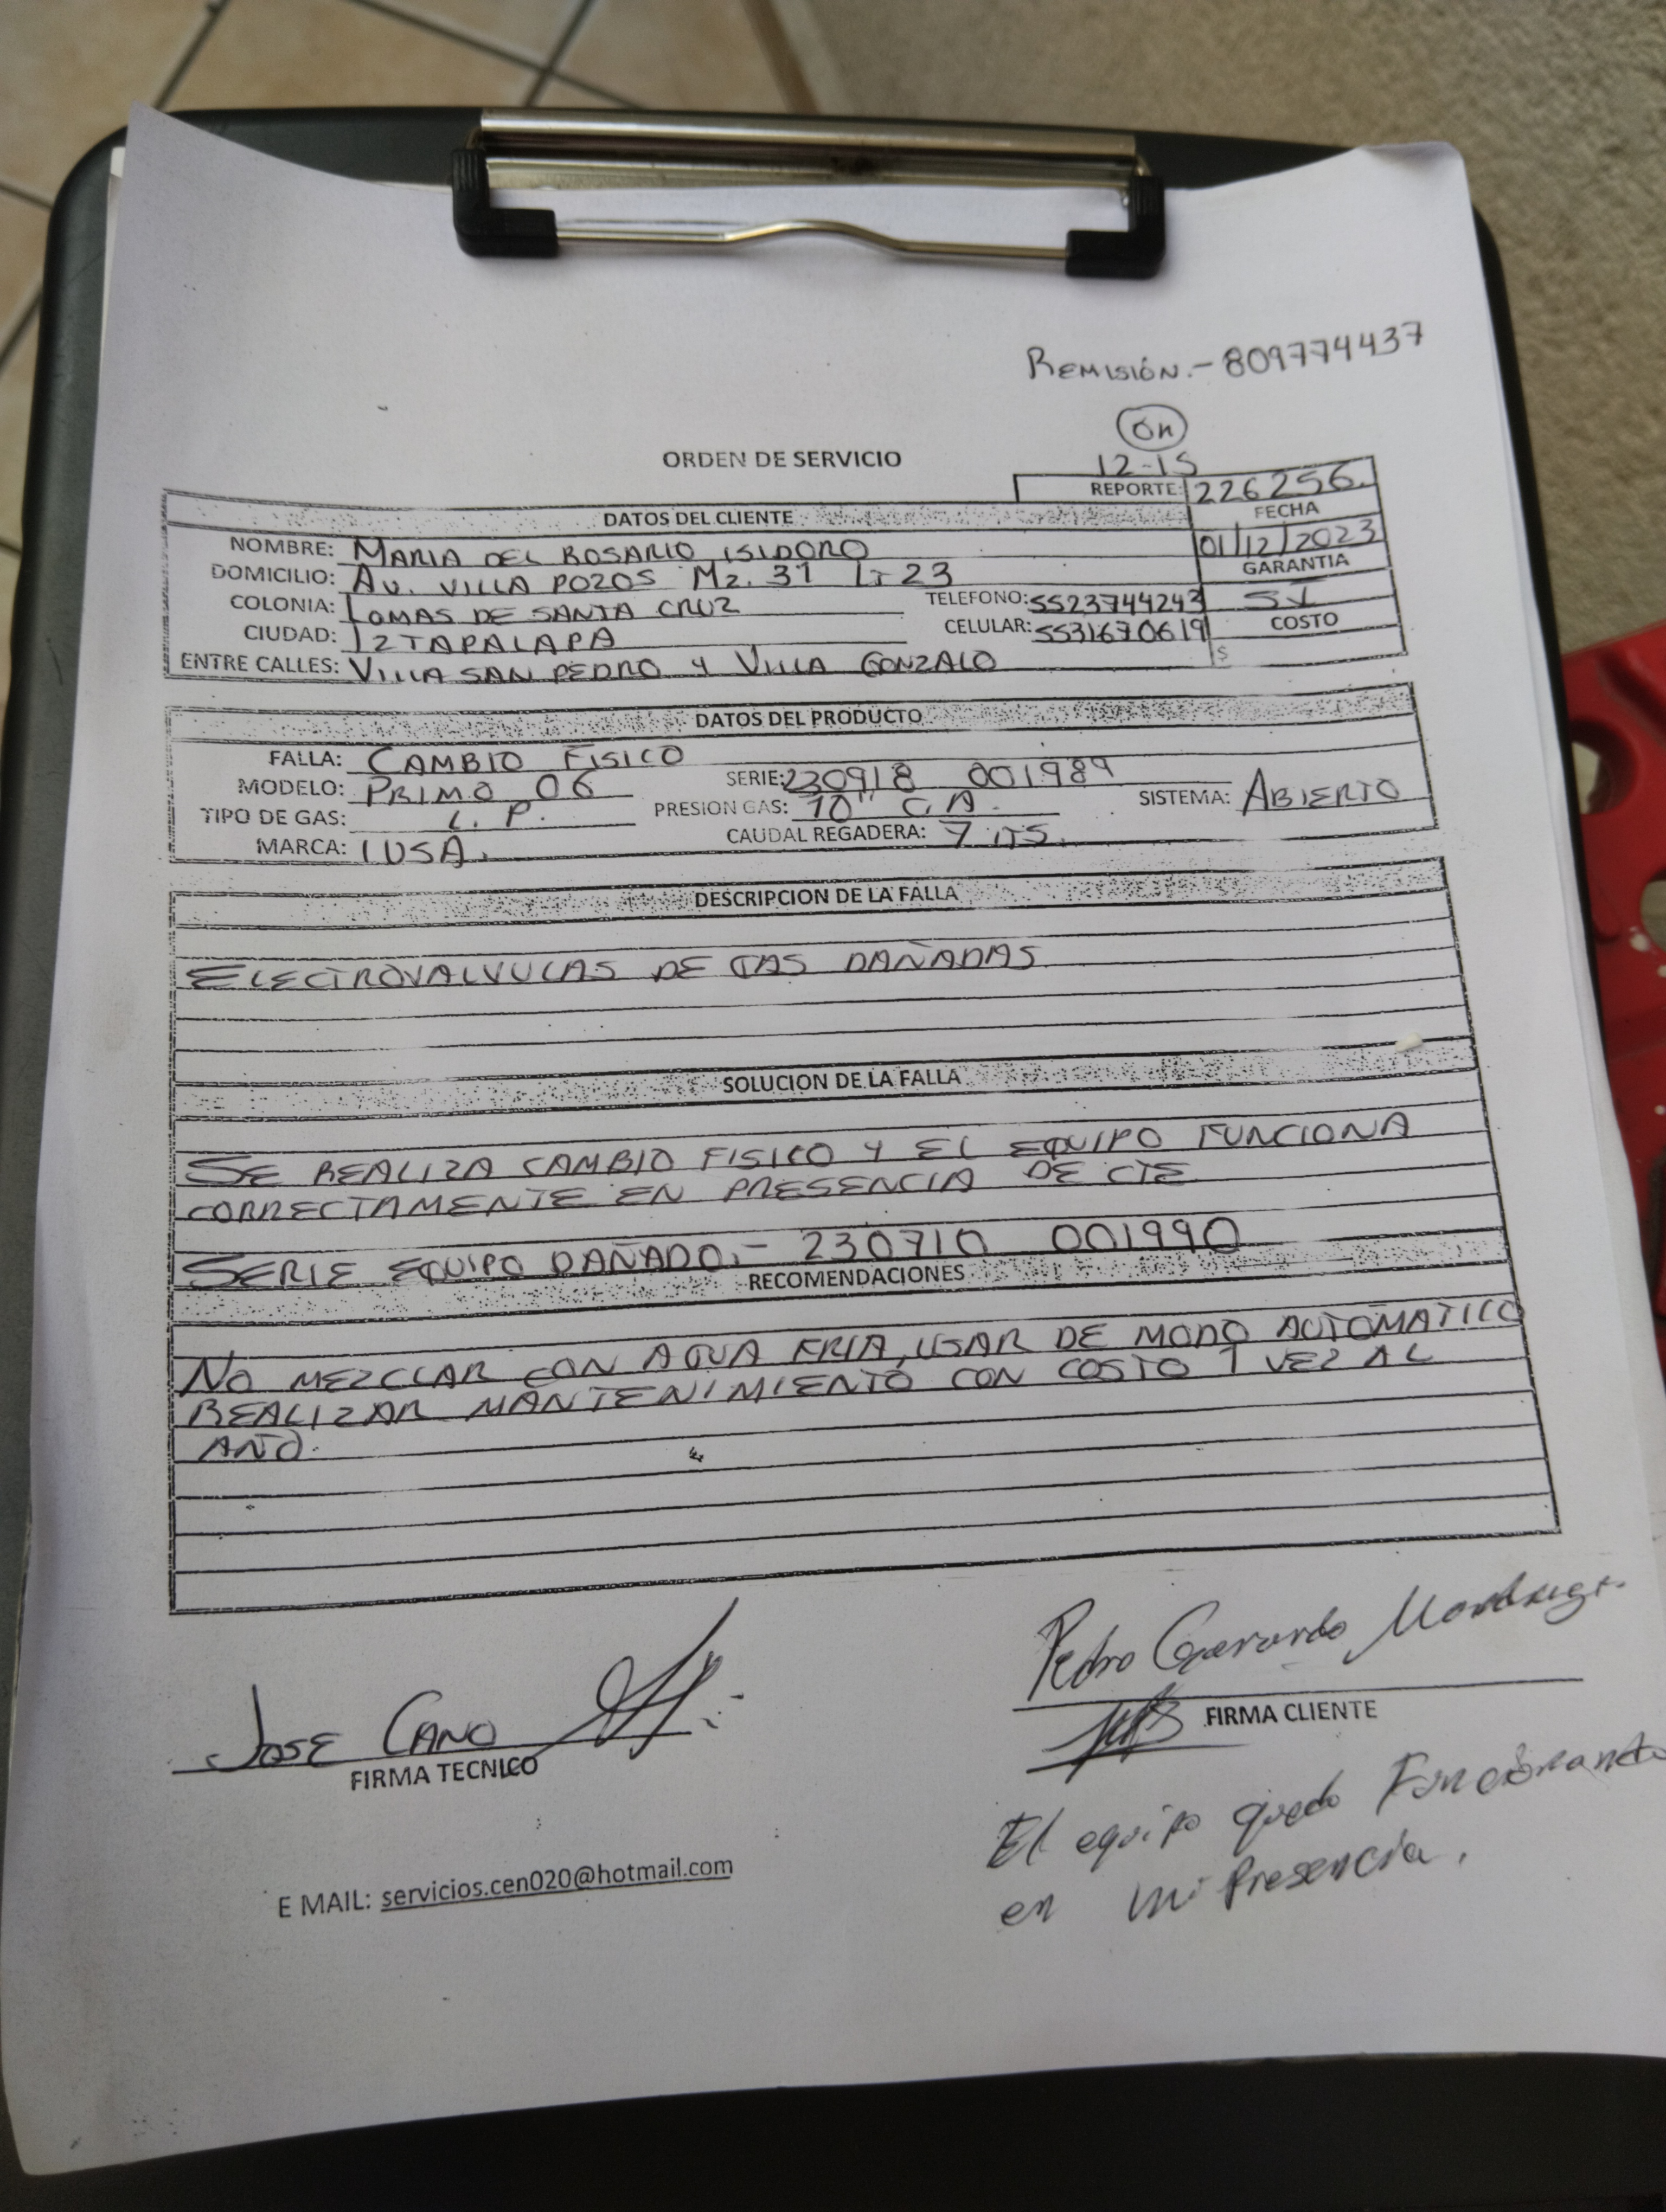 REMISIÓN.- 809774437
ORDEN DE SERVICIO
12-15
REPORTE: 226256.
DATOS DEL CLIENTE
FECHA
NOMBRE: MARIA DEL ROSARIO ISIDORO
01/12/2023
DOMICILIO: AV. VILLA POZOS MZ. 31 LT 23
GARANTIA
COLONIA: LOMAS DE SANTA CRUZ
TELEFONO: 5523744243
SI
CIUDAD: IZTAPALAPA
CELULAR: 5531670619
COSTO
ENTRE CALLES: VILLA SAN PEDRO Y VILLA GONZALO
$
DATOS DEL PRODUCTO
FALLA: CAMBIO FISICO
MODELO: PRIMO 06 SERIE: 230918 001989
TIPO DE GAS: L.P. PRESION GAS: 10" C.A. SISTEMA: ABIERTO
MARCA: IUSA. CAUDAL REGADERA: 7 LTS.
DESCRIPCION DE LA FALLA
ELECTROVALVULAS DE GAS DAÑADAS
SOLUCION DE LA FALLA
SE REALIZA CAMBIO FISICO Y EL EQUIPO FUNCIONA
CORRECTAMENTE EN PRESENCIA DE CTE
SERIE EQUIPO DAÑADO.- 230710 001990
RECOMENDACIONES
NO MEZCLAR CON AGUA FRIA, USAR DE MODO AUTOMATICO
REALIZAR MANTENIMIENTO CON COSTO 1 VEZ AL
AÑO.
JOSE CANO
FIRMA TECNICO
Pedro Gerardo
FIRMA CLIENTE
El equipo quedo Funcionando
en mi Presencia.
E MAIL: servicios.cen020@hotmail.com